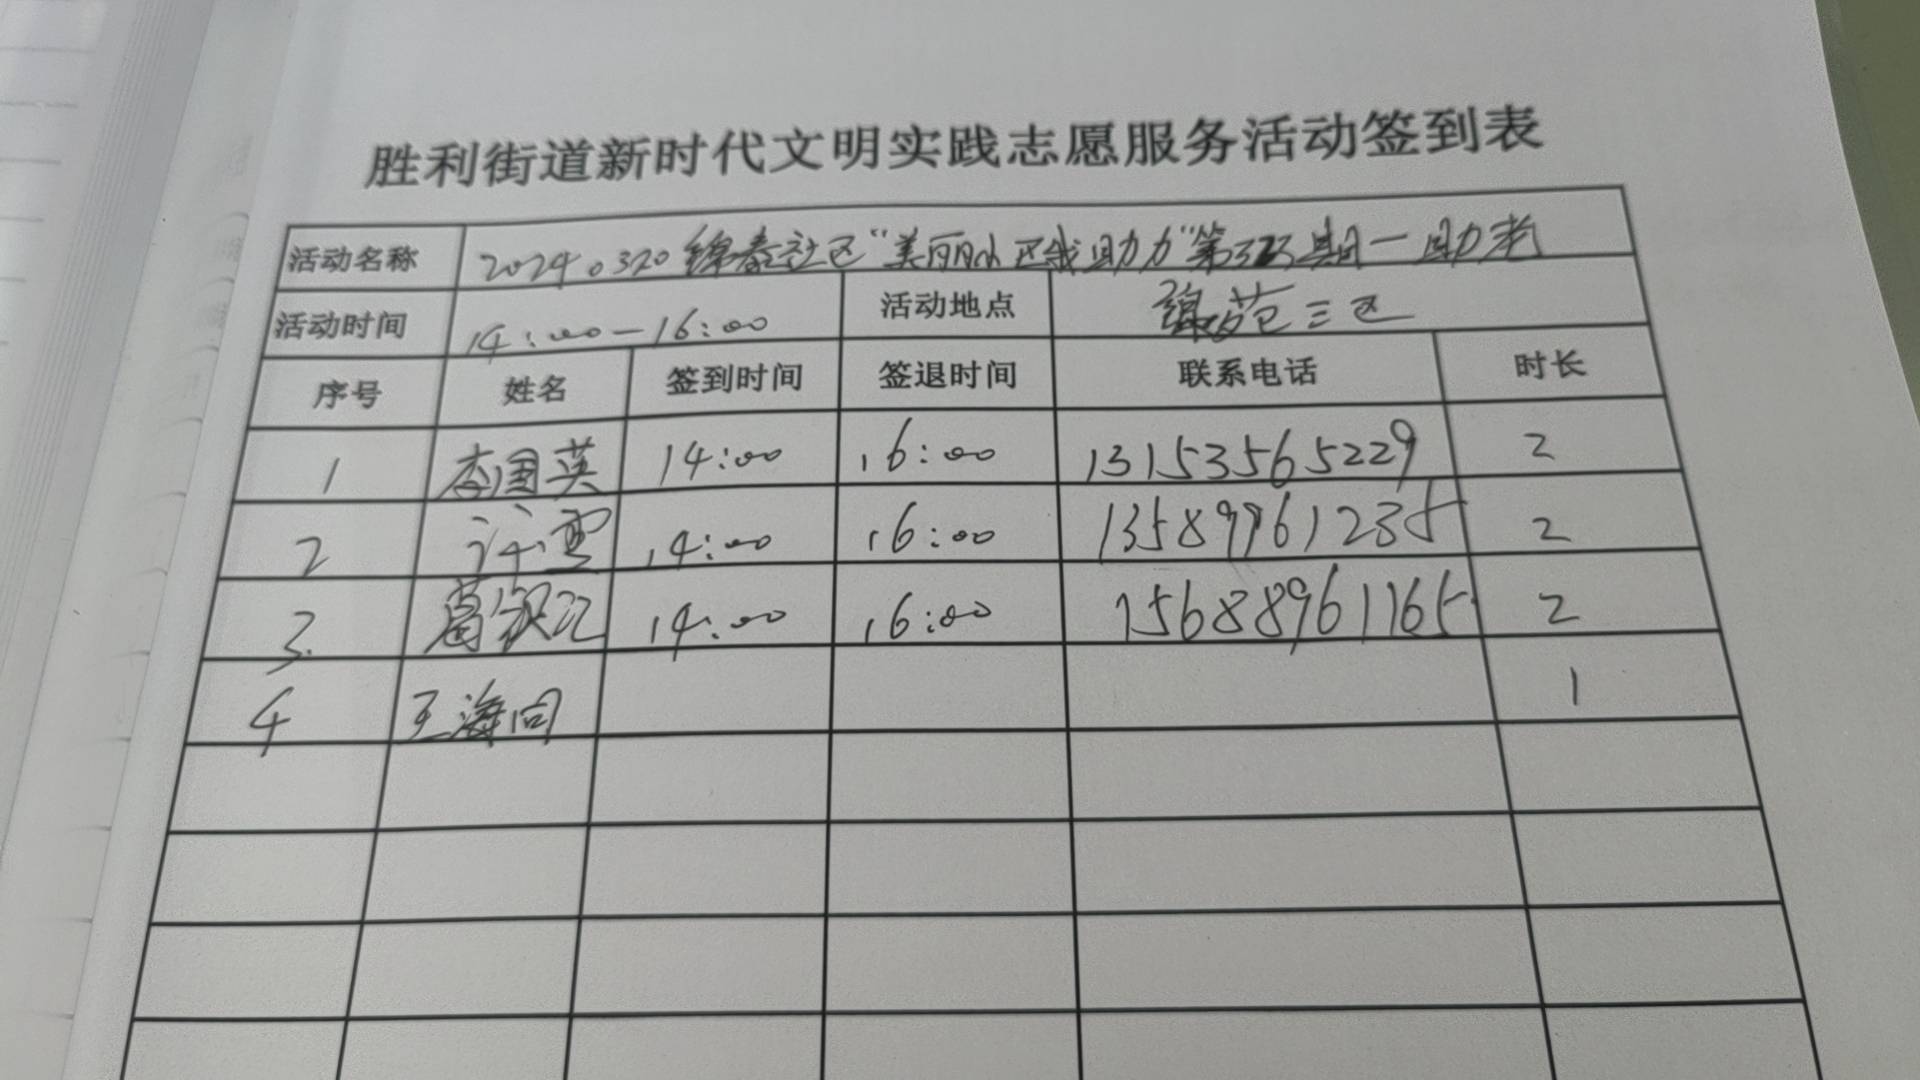 胜利街道新时代文明实践志愿服务活动签到表
活动名称 2024.0320 锦泰社区“美丽小区我助力”第 期一助老
活动时间 14:00-16:00 活动地点 锦苑三区
序号 姓名 签到时间 签退时间 联系电话 时长
1 李国英 14:00 16:00 13153565229 2
2 许雪 14:00 16:00 13589961235 2
3. 葛 14:00 16:00 15688961165 2
4 王海 1